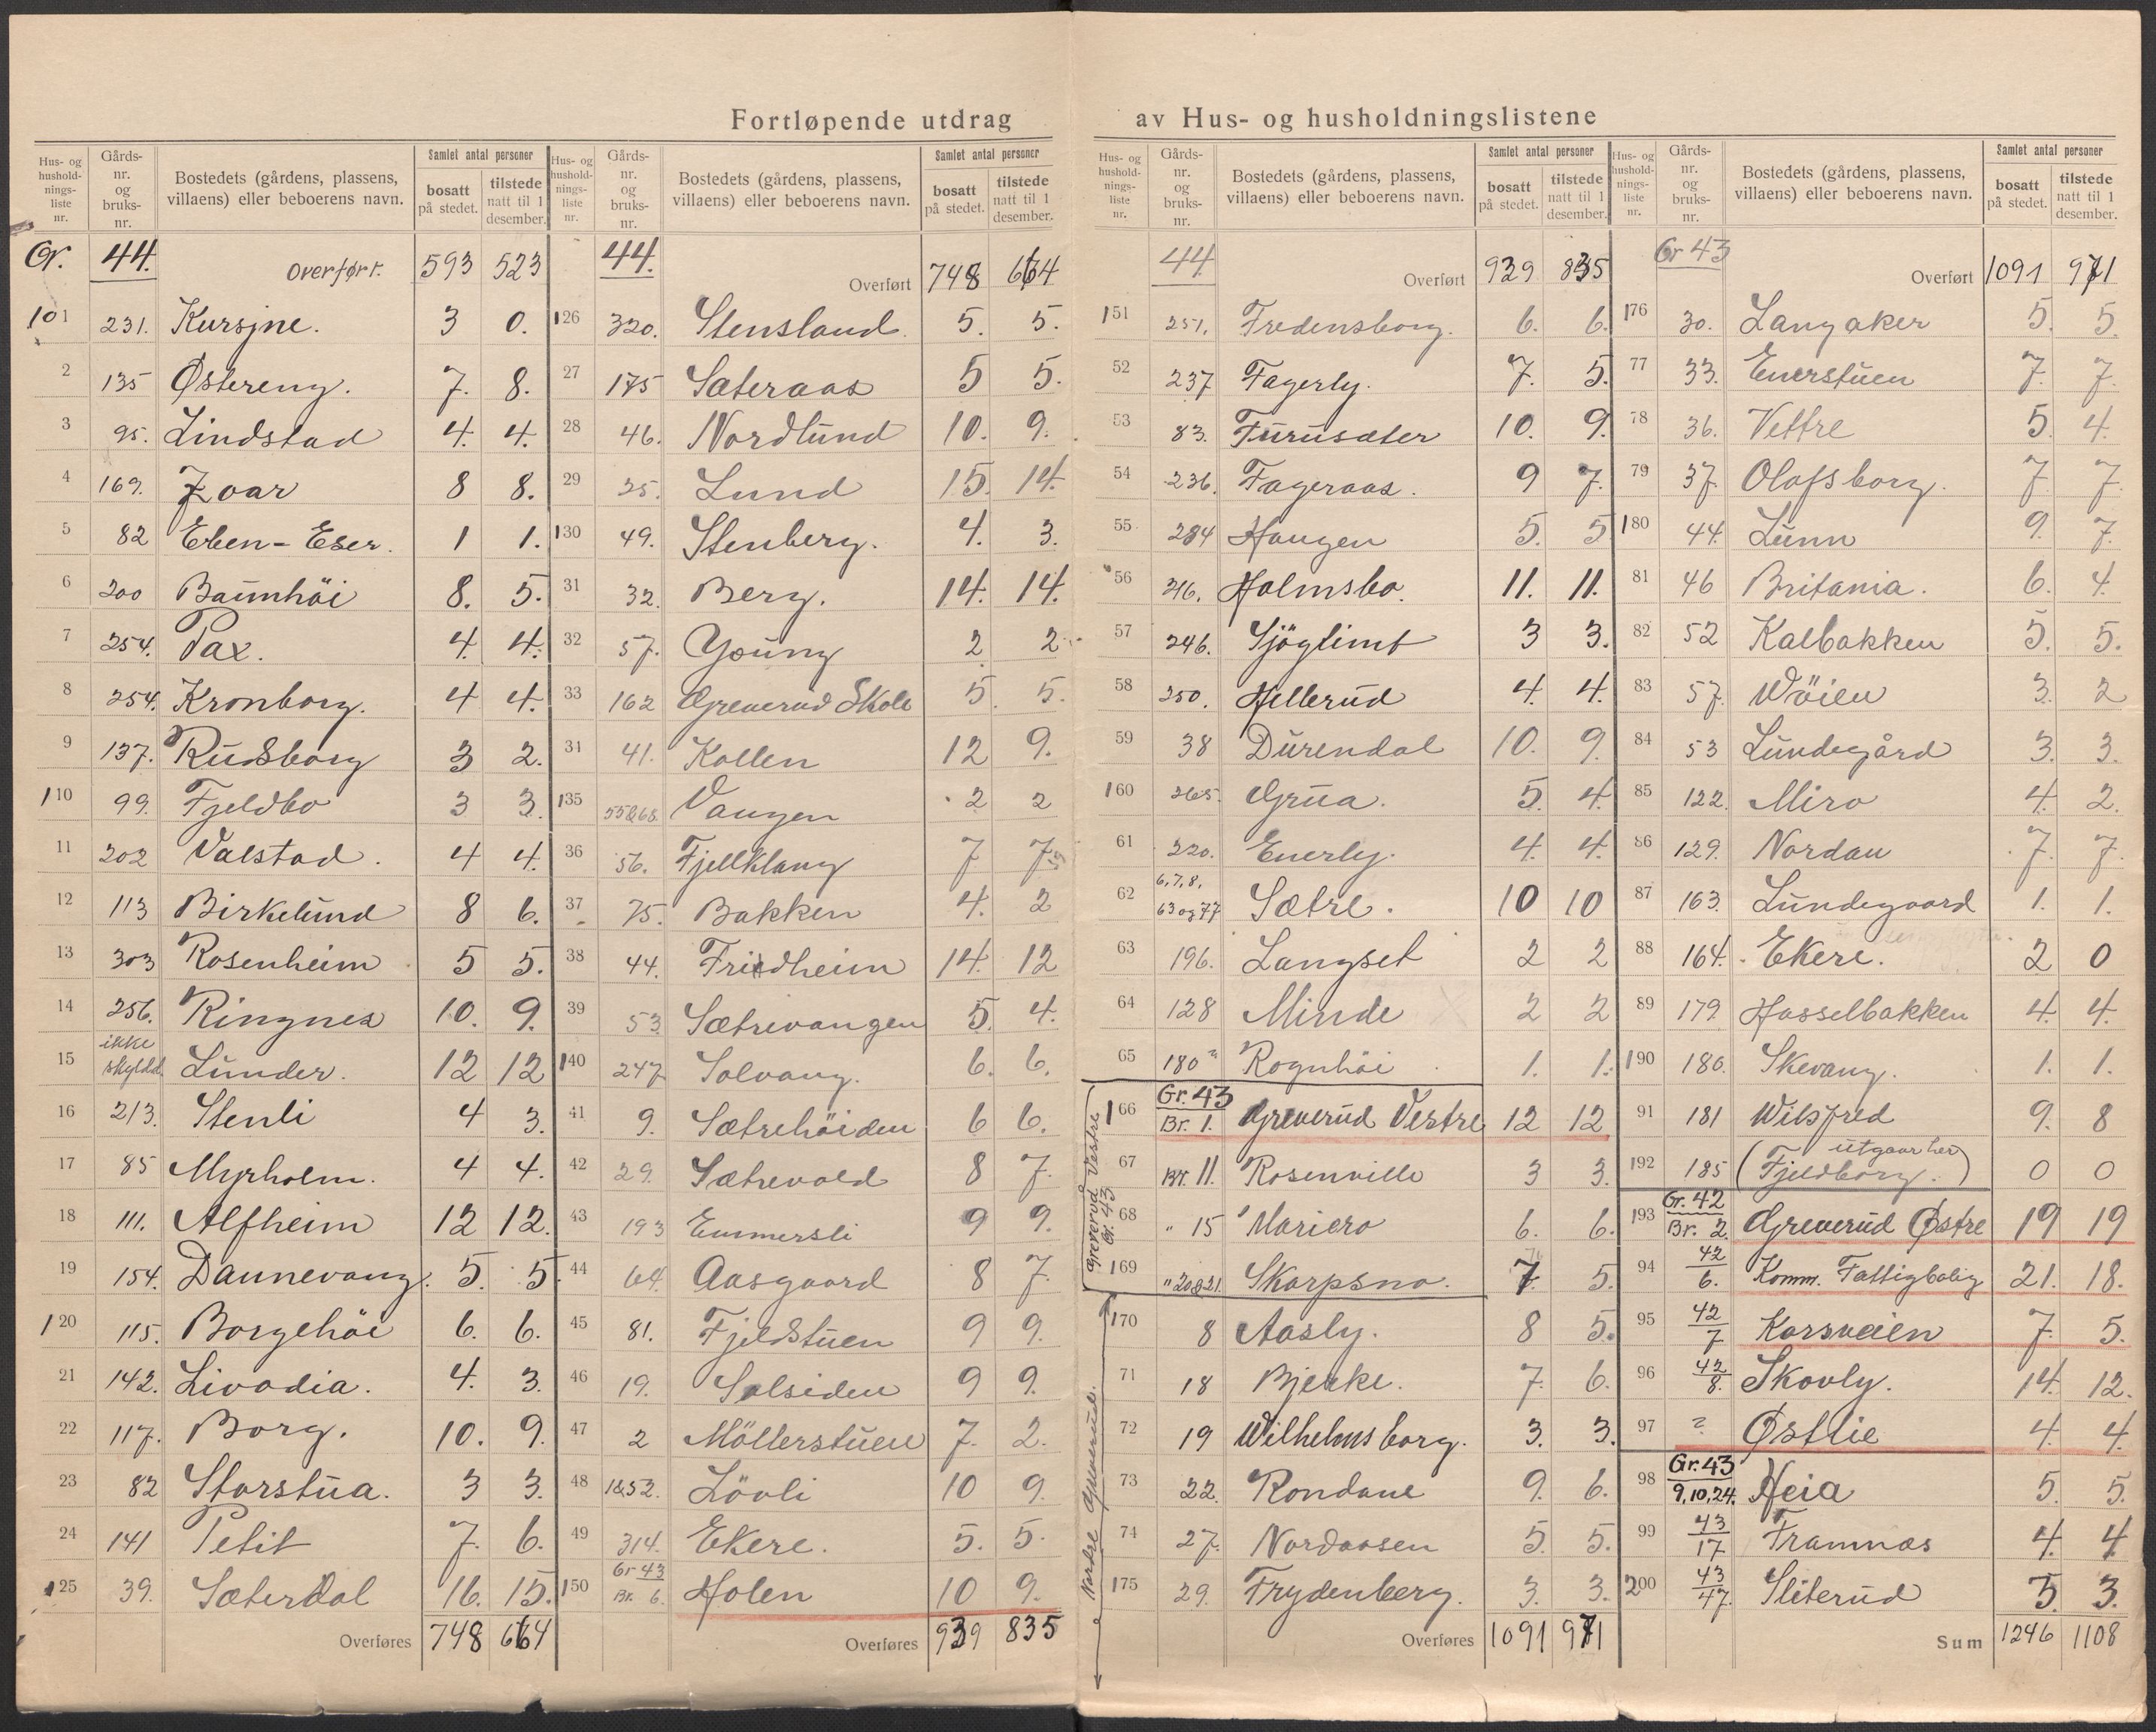 Fortløpende utdrag av Hus- og husholdningslistene
Hus- og hushold-nings-liste nr. Gårds-nr. og bruks-nr. Bostedets (gårdens, plassens, villaens) eller beboerens navn. Samlet antal personer bosatt på stedet. tilstede natt til 1 desember.
Gr. 44. Overført. 593 523
101 231. Kursjne. 3 0.
2 135 Østereng. 7. 8.
3 95. Lindstad 4. 4.
4 169. Zoar 8 8.
5 82 Eben-Eser. 1 1.
6 200 Baumhöi 8. 5.
7 254. Pax. 4. 4.
8 254. Kronborg. 4 4.
9 137. Rudsborg 3 2.
110 99. Fjeldbo 3 3.
11 202 Valstad. 4 4.
12 113 Birkelund 8 6.
13 303 Rosenheim 5 5.
14 256. Ringnes 10. 9.
15 ikke skyldd. Lunder. 12 12
16 213. Stenli 4 3.
17 85 Myrholm. 4 4.
18 111. Alfheim 12 12.
19 154. Dannevang. 5. 5.
120 115. Borgehöi 6. 6.
21 142. Livadia. 4. 3.
22 117. Borg. 10. 9.
23 82 Storstua. 3 3.
24 141 Petit 7. 6.
125 39. Sæterdal 16. 15.
Overføres 748 664
Hus- og hushold-nings-liste nr. Gårds-nr. og bruks-nr. Bostedets (gårdens, plassens, villaens) eller beboerens navn. Samlet antal personer bosatt på stedet. tilstede natt til 1 desember.
44. Overført 748 664
126 320. Stensland. 5. 5.
27 175 Sateraas 5 5.
28 46. Nordlund 10. 9.
29 25. Lund 15. 14.
130 49. Stenberg. 4. 3.
31 32. Berg. 14. 14.
32 57. Young 2 2
33 162 Greverud Skole 5. 5.
34 41. Kollen 12 9.
135 55&68. Vangen 2 2
36 56. Fjellklang 7 7.
37 75. Bakken 4. 2
38 44. Fridheim 14. 12
39 53 Sætrevangen 5. 4.
140 247 Solvang. 6. 6.
41 9. Sætrehöiden 6 6.
42 29. Sætrevold 8 7.
43 193 Emmersli 9 9.
44 64. Aasgaard 8 7.
45 81. Fjeldstuen 9 9.
46 19. Solsiden 9 9.
47 2 Möllerstuen 7. 2.
48 1&52. Lövli 10 9.
49 314. Ekere. 5. 5.
150 Gr 43 Br. 6. Holen 10 9.
Overføres 939 835
Hus- og hushold-nings-liste nr. Gårds-nr. og bruks-nr. Bostedets (gårdens, plassens, villaens) eller beboerens navn. Samlet antal personer bosatt på stedet. tilstede natt til 1 desember.
44 Overført 939 835
151 251. Fredensborg. 6. 6.
52 237 Fagerly. 7. 5.
53 83. Furusæter 10. 9.
54 236. Fageraas. 9 7.
55 284 Haugen 5. 5
56 316. Holmsbo. 11. 11.
57 246. Sjöglimt 3 3.
58 250. Hellerud 4. 4.
59 38 Durendal 10. 9.
160 265. Grua. 5. 4.
61 220. Enerly. 4. 4.
62 6, 7, 8, 63 og 77 Sætre. 10 10
63 196. Langset 2 2
64 128 Minde 2 2
65 180 Rognhöi 1. 1.
Greverud Vestre Gr. 43
166 Gr. 43 Br. 1. Greverud Vestre 12 12
67 Br. 11. Rosenville 3 3.
68 " 15 Mariero 6. 6.
169 " 20&21. Skarpsno. 7. 5.
Norder Greverud.
170 8 Aasly. 8 5.
71 18 Bjerke. 7. 6.
72 19 Wilhelmsborg. 3. 3.
73 22. Rondane 9. 6.
74 27. Nordaasen 5. 5.
175 29. Frydenberg. 3. 3.
Overføres 1091 971
Hus- og hushold-nings-liste nr. Gårds-nr. og bruks-nr. Bostedets (gårdens, plassens, villaens) eller beboerens navn. Samlet antal personer bosatt på stedet. tilstede natt til 1 desember.
Gr 43 Overført 1091 971
176 30. Langaker 5. 5.
77 33. Enerstuen 7. 7.
78 36. Vettre 5. 4.
79 37. Olafsborg. 7. 7.
180 44. Lunn 9. 7.
81 46 Britania. 6. 4.
82 52 Kalbakken 5. 5.
83 57. Wöien 3. 2
84 53 Lundegård 3. 3.
85 122. Miro 4. 2.
86 129. Nordau 7. 7.
87 163. Lundegaard 1. 1.
88 164. Ekere. 2 0
89 179. Hasselbakken 4. 4.
190 180. Skevang. 1. 1.
91 181 Wilsfred 9. 8
192 185 (Fjeldborg. utgaar her) 0 0
193 Gr. 42 Br. 2. Greverud Østre 19 19
94 42/6. Komm. Fattigbolig 21. 18.
95 42/7 Korsveien 7. 5.
96 42/8. Skovly. 14. 12.
97 ? Østlie 4. 4.
98 Gr. 43 9, 10, 24. Heia 5. 5.
99 43/17 Framnæs 4. 4
200 43/47. Sliterud 5. 3.
Sum 1246 1108